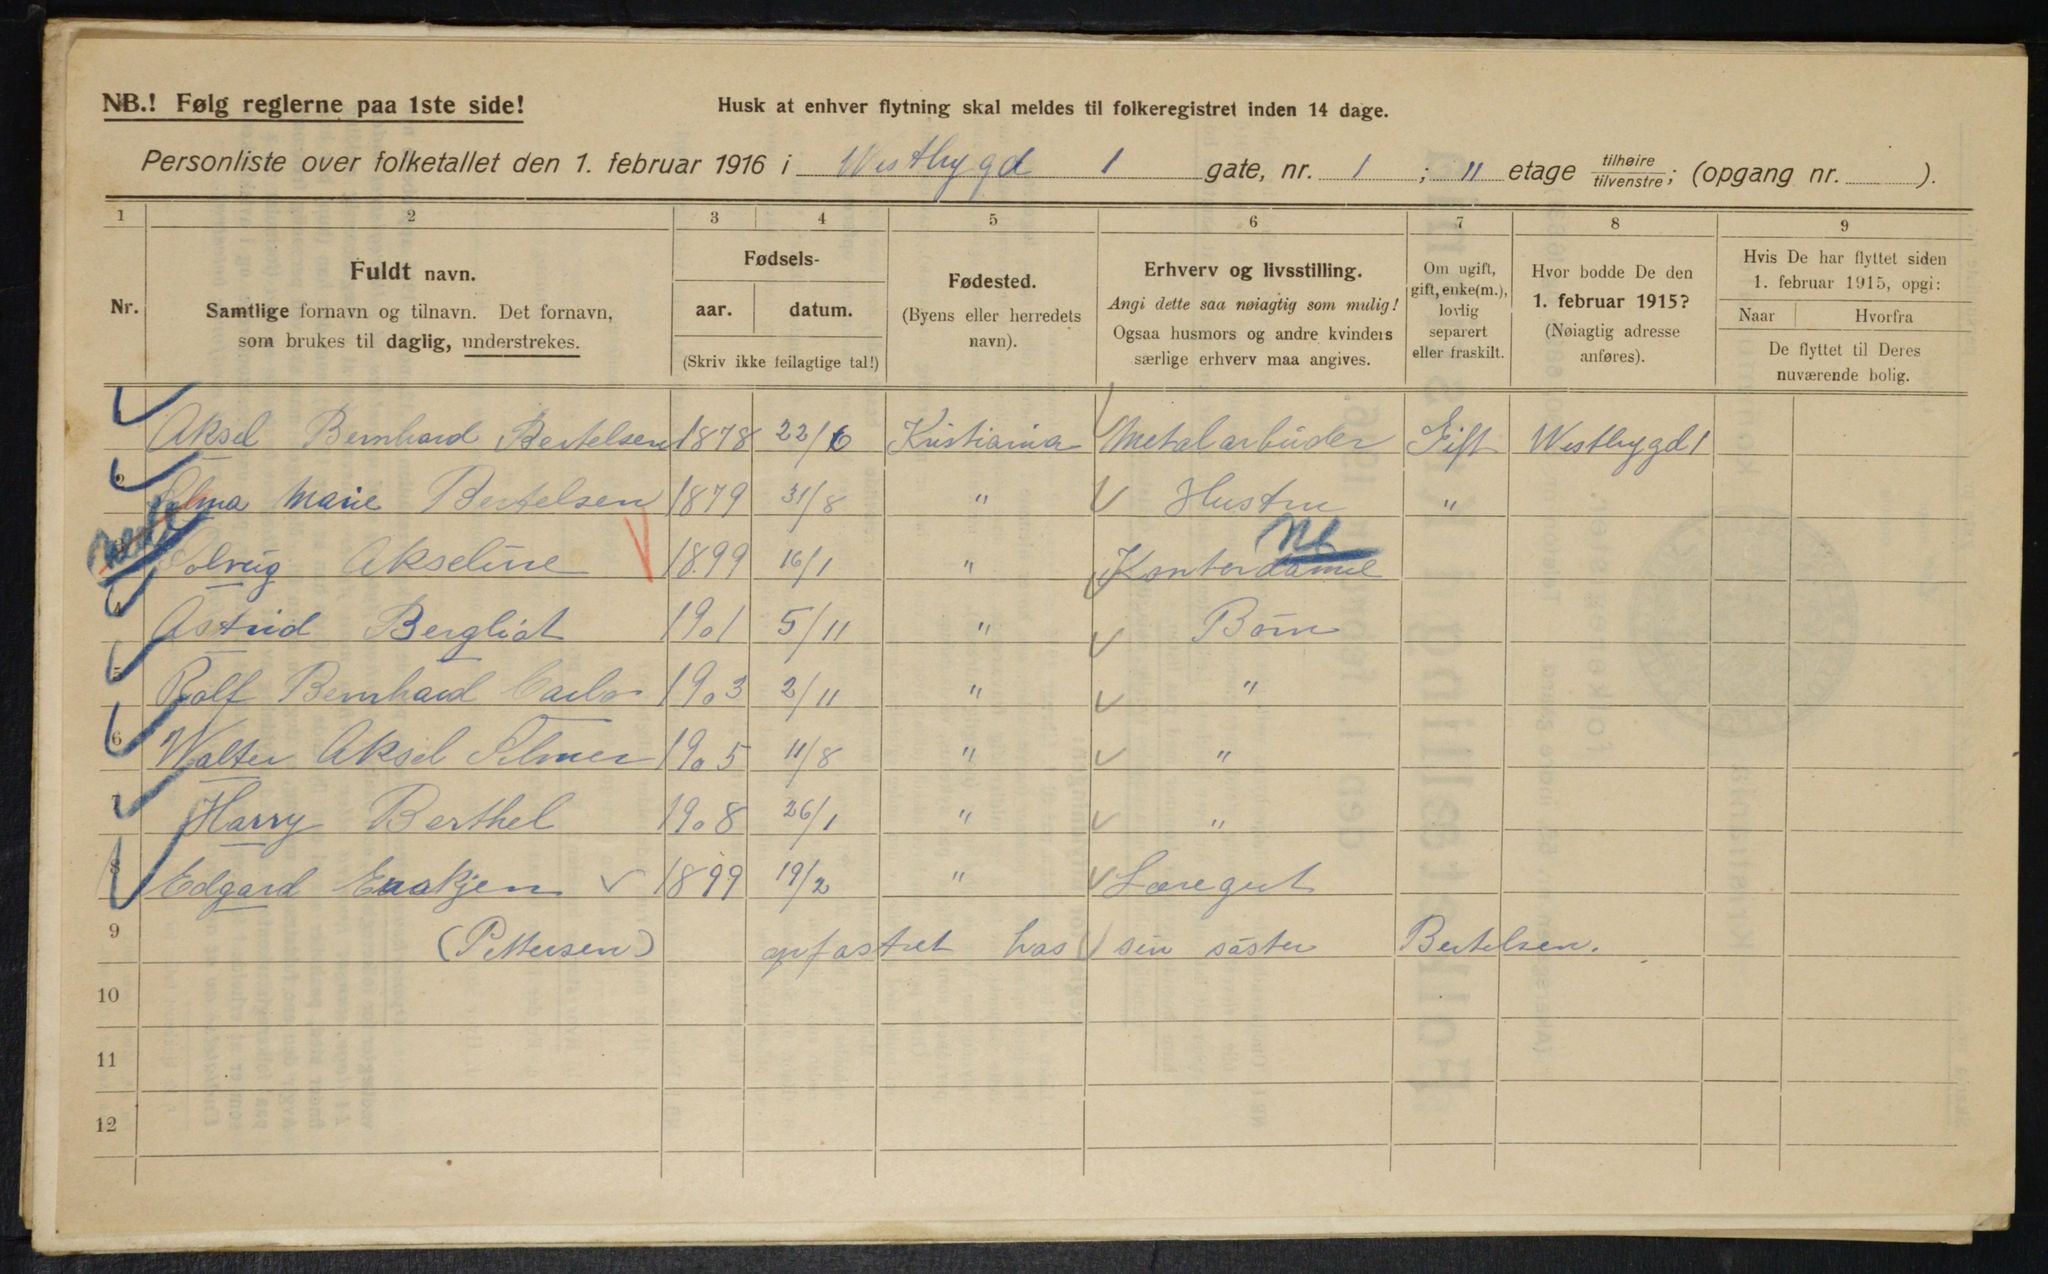 NB.! Følg reglerne paa 1ste side!
Husk at enhver flytning skal meldes til folkeregistret inden 14 dage.
Personliste over folketallet den 1. februar 1916 i Westbygd 1 gate, nr. 1 ; II etage tilhøire/tilvenstre; (opgang nr. ).
1 2 3 4 5 6 7 8 9
Nr.
Fuldt navn.
Samtlige fornavn og tilnavn. Det fornavn,
som brukes til daglig, understrekes.
Fødsels-
aar. datum.
(Skriv ikke feilagtige tal!)
Fødested.
(Byens eller herredets
navn).
Erhverv og livsstilling.
Angi dette saa nøiagtig som mulig!
Ogsaa husmors og andre kvinders
særlige erhverv maa angives.
Om ugift,
gift, enke(m.),
lovlig
separert
eller fraskilt.
Hvor bodde De den
1. februar 1915?
(Nøiagtig adresse
anføres).
Hvis De har flyttet siden
1. februar 1915, opgi:
Naar Hvorfra
De flyttet til Deres
nuværende bolig.
1 Aksel Bernhard Bertelsen 1878 22/6 Kristiania Metalarbeider Gift Westbygd 1
2 Alma Marie Bertelsen 1879 31/8 " Hustru "
Solveig Akseline 1899 16/1 " Kontordame
4 Astrid Bergliot 1901 5/11 " Børn
5 Rolf Bernhard Carlo 1903 2/11 " "
6 Walter Aksel Elmer 1905 11/8 " "
7 Harry Berthel 1908 26/1 " "
8 Edgard 1899 19/2 " Læregut
9 (Pettersen) opfostret hos sin søster Bertelsen.
10
11
12